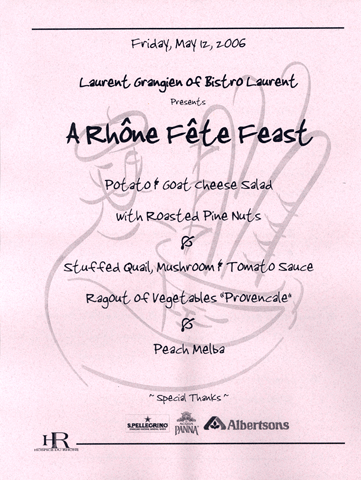 Friday, May 12, 2006
Laurent Grangien of Bistro Laurent
Presents
A Rhône Fête Feast
Potato & Goat Cheese Salad
with Roasted Pine Nuts
Stuffed Quail, Mushroom & Tomato Sauce
Ragout of Vegetables "Provencale"
Peach Melba
~ Special Thanks ~
S.PELLEGRINO
ACQUA PANNA
Albertsons
HR
HOSPICE DU RHÔNE